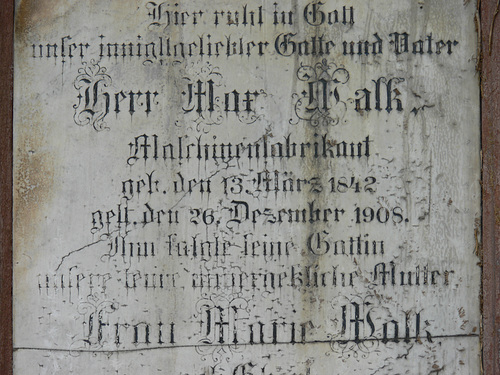 Hier ruht in Gott
unser innigstgeliebter Gatte und Vater
Herr Max Walk
Maschinenfabrikant
geb. den 13. März 1842
gest. den 26. Dezember 1908.
Ihm folgte seine Gattin
unsere teure unvergeßliche Mutter
Frau Marie Walk
geb.